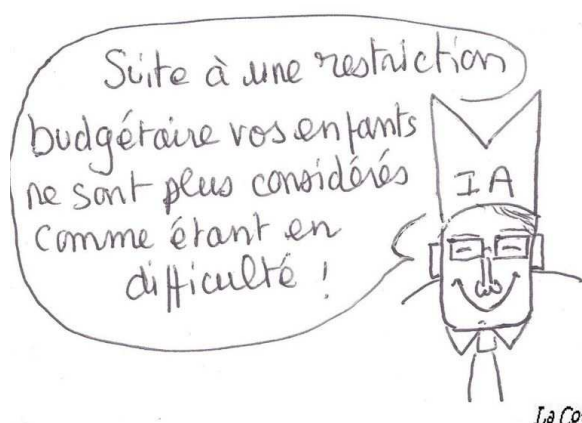 Suite à une restriction
budgétaire vos enfants
ne sont plus considérés
comme étant en
difficulté !
IA
La Co